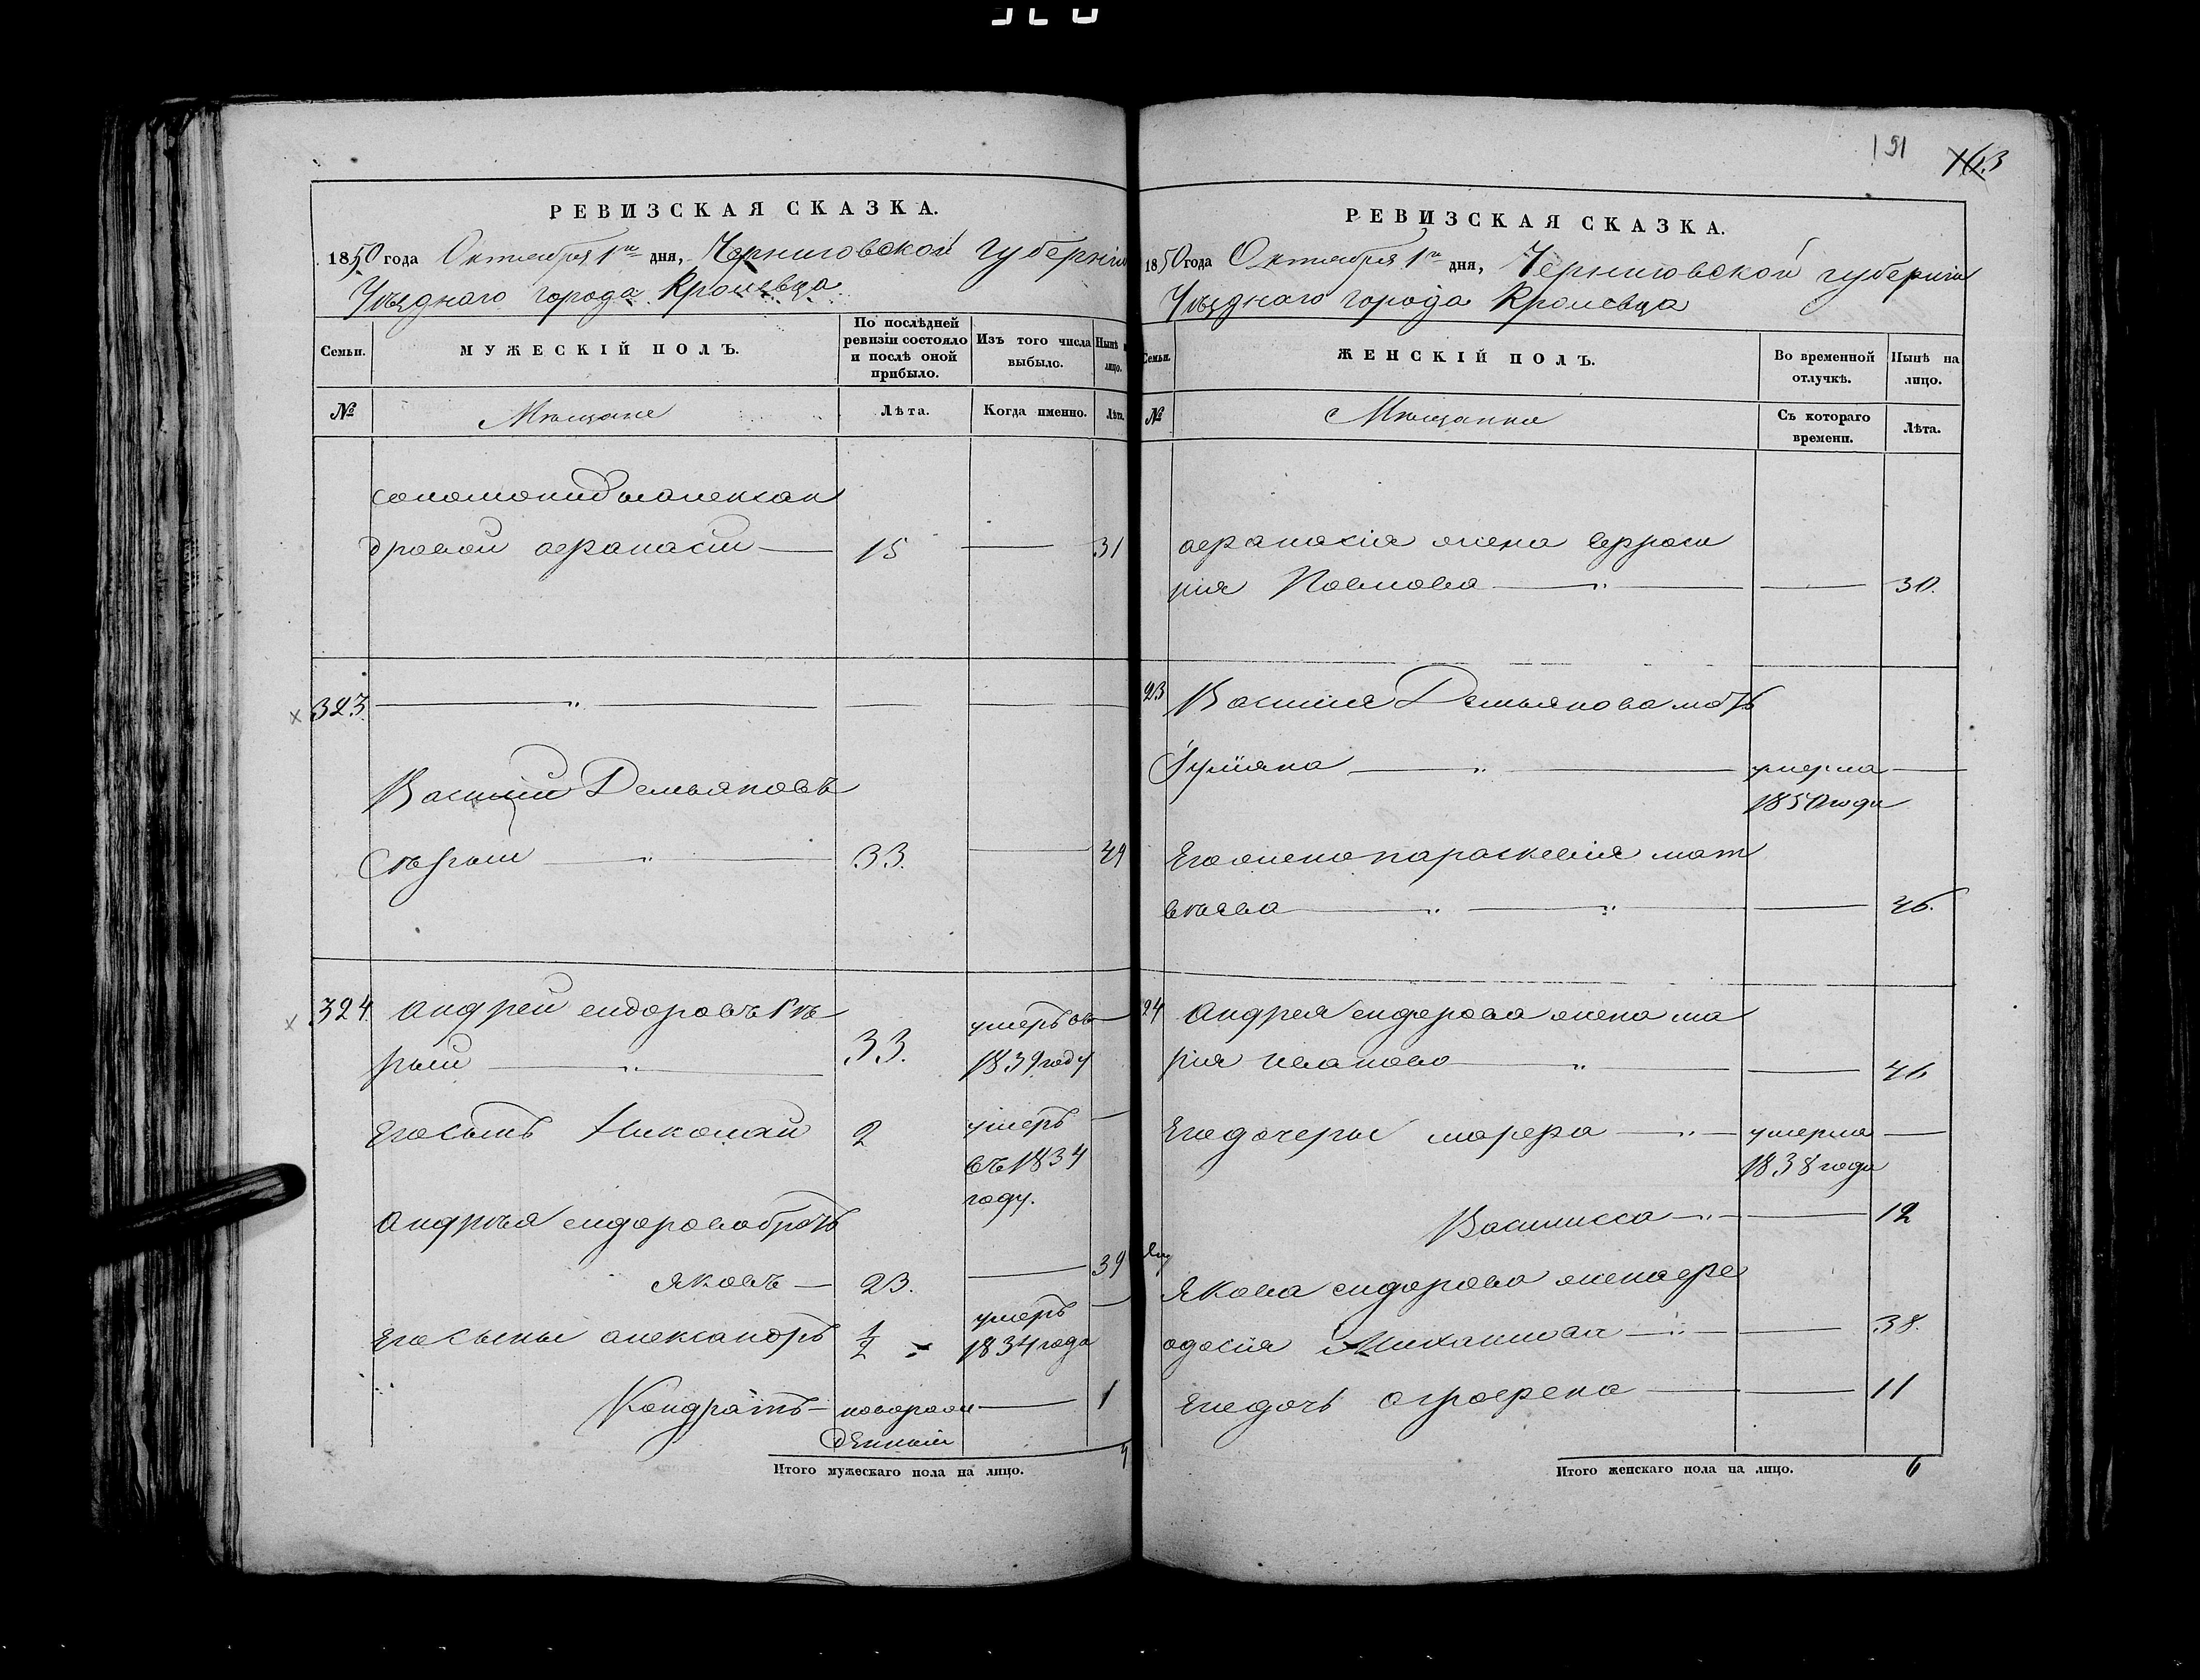 191 163
РЕВИЗСКАЯ СКАЗКА.
1850 года Октября 1го дня, Черниговской губерніи
Уѣзднаго города Кролевца
Семьи.
МУЖЕСКІЙ ПОЛЪ.
По послѣдней ревизіи состояло и послѣ оной прибыло.
Изъ того числа выбыло.
Нынѣ на лицо.
№
Мѣщане
Лѣта.
Когда именно.
Лѣта.
соломонидыалексан
дровой афанасій 15 31
323.
Василій Демьяновъ
Сѣрый 33. 49
324. андрей сидоровъ Сѣ
рый 33. умеръ въ
1839 году
Егосынъ Николай 2 умеръ
въ 1834
году.
андрѣя сидоровабратъ
яковъ 23. 39
Егосыны александръ 1/2 умеръ
1834 года
Кондратъ новорож 1
денный
Итого мужескаго пола на лицо. 4
РЕВИЗСКАЯ СКАЗКА.
1850 года Октября 1го дня, Черниговской губерніи
Уѣзднаго города Кролевца
Семьи.
ЖЕНСКІЙ ПОЛЪ.
Во временной отлучкѣ.
Нынѣ на лицо.
№
Мѣщанки
Съ котораго времени.
Лѣта.
афанасія жена ефроси
нія Павлова 30.
23 Василія Демьянова мать
Ѵулияна умерла
1850 года
Егожена параскевія мат
вѣева 46.
24 андрея сидорова жена ма
рія иванова 46
Егодочери марфа умерла
1838 года
Василисса 12
Якова сидорова женафе
одосія Михайлова 38.
Егодочь аграфена 11
Итого женскаго пола на лицо. 6